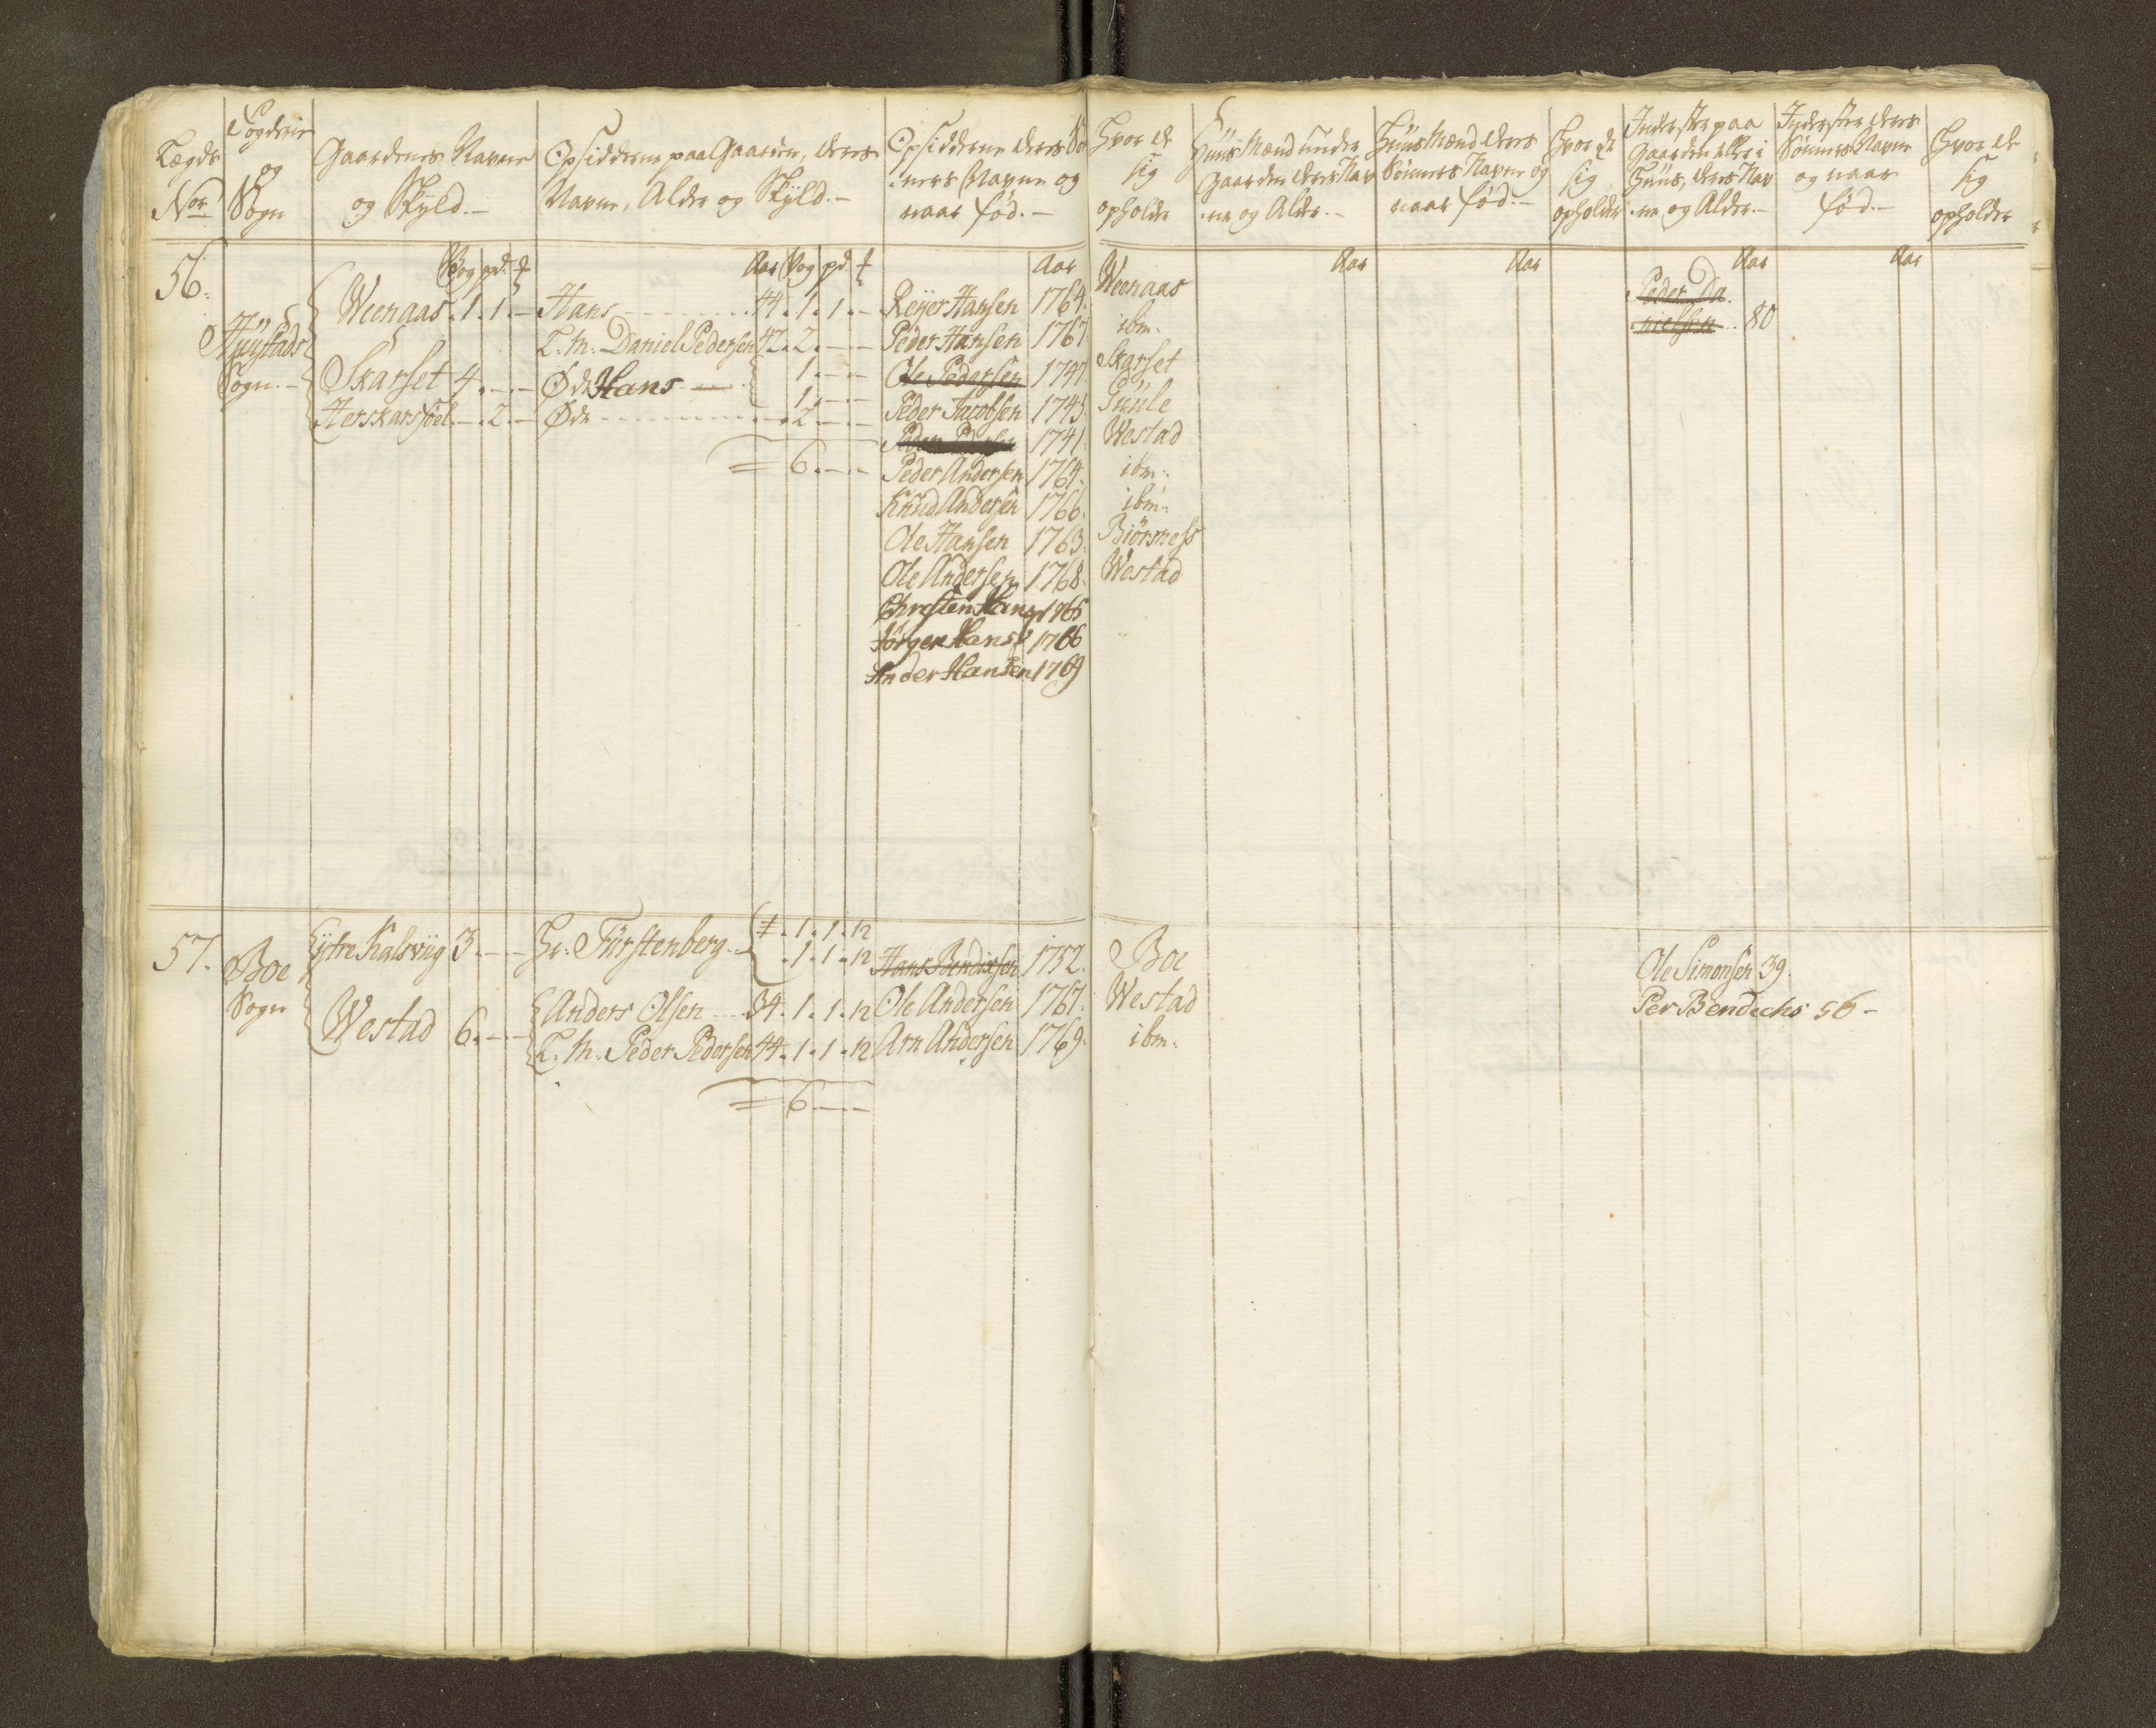 Lægds
No.
Fogderie
og
Sogn
Gaardenes Navne
og Skyld.
Opsidderne paa Gaarden, deres
Navne, Alder og Skyld.
Opsidderne deres Søn
ners Navne og
naar fød.
Hvor de
sig
opholder
Huus Mænd under
Gaarden deres Nav
ne og Alder.
Huus Mænd deres
Sønners Navne og
naar fød.
Hvor de
sig
opholder
Inderster paa
Gaarden eller i
Huus, deres Nav
ne og Alder.
Inderster deres
Sønners Navne
og naar
fød.
Hvor de
sig
opholder
Wog pd. Aar Wog pd. Aar Aar Aar Aar Aar
56.
Hüystads
Sogn.
Weenaas 1. 1. Hans 44. 1. 1. Reyer Hansen 1764. Weenaas Peder Da
L. M. Daniel Pedersen 42. 2. Peder Hansen 1767 ibm. nielsen 80
Skarset 4. Øde Hans 1. Ole Pedersen 1747 Skarset
1. Peder Jacobsen 1745. Suule
Herskarsøel 2. Øde 2. 1741. Westad
6. Peder Andersen 1764. ibm.
Knud Andersen 1766. ibm.
Ole Hansen 1763. Biørness
Ole Andersen 1768. Westad
Christen Hans 1765
Jörgen Hans 1766
Ander Hansen 1769
57.
Boe
Sogn
Ystre Kalsviig 3. Hr. Fürstenberg 1. 1. 12
1. 1. 12 Hans Bendixsen 1752. Boe Ole Simonsen 39.
Westad 6. Anders Olsen 34. 1. 1. 12 Ole Andersen 1767. Westad Per Bendichs 56
L. M. Peder Pedersen 44. 1. 1. 12 Arn Andersen 1769. ibm.
6.